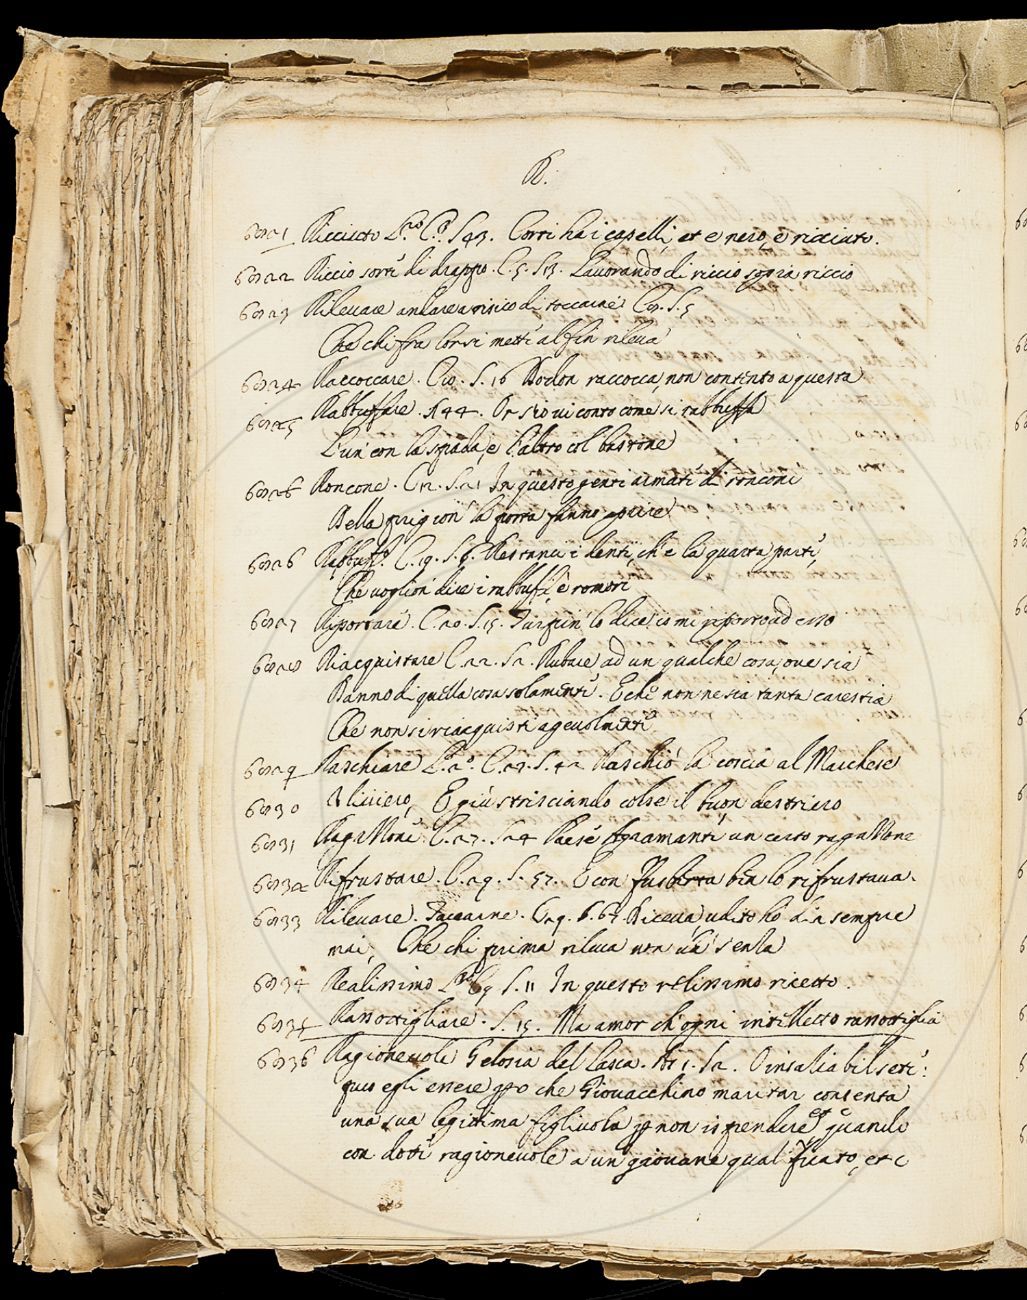 R.
6021 Ricciuto L.º C.º S 43. Corti ha i capelli, et e nero, e ricciuto.
6022 Riccio sorte di drappo. C. 5. S. Lavorando di riccio sopra riccio
6023 Rilevare andare a risico di toccarne S. 5
Che chi fra lor si mette al fin rileva
6024 Raccoccare. S. 16 raccocca, non contento a questa
6025 Rabbuffare. S 44. Or s'io vi conto come si rabbuffa
L'un con la spada, e l'altro col bastone
6026 Roncone. In questo genti armate di ronconi
Della prigion la porta fanno aprire
6026 C. 19. S. 6. Restanci i denti, ch'e la quarta parte,
Che voglion dire i rabbuffi, e romori
6027 Riportare. C. 20. S. 15. Turpin lo dice, io mi riporto ad esso
6028 Riacquistare C. 22. S. 2 Rubare ad un qualche cosa, ove sia
Danno di quella cosa solamente. E che non ne sia tanta carestia
Che non si riacquisti agevolmente
6029 Raschiare L.º 2.º C. 27. S. 42 Raschiò la coscia al Marchese
6030 Uliviero, E giù strisciando colse il buon destriero
6031 Ragattone. C. 27. S. 24 Agramante un certo ragattone
6032 Rifrustare. C. 29. S. 57. E con Fusberta ben lo rifrustava.
6033 Rilevare. Toccarne. 6. 67. Diceva udito ho dir sempre
mai, Che chi prima rileva non va senza
6034 Realissimo S. 11 In questo relissimo ricetto.
6035 Rassottigliare. S. 15. Ma amor ch'ogni intelletto rassottiglia
6036 Ragionevole Gelosia del Lasca. At. 1. S. 2. O insaliabilsere:
puo egli essere però che Giovacchino maritar consenta
una sua legittima figliuola per non ispendere et quando
con dote ragionevole a un giovane qualificato, etc